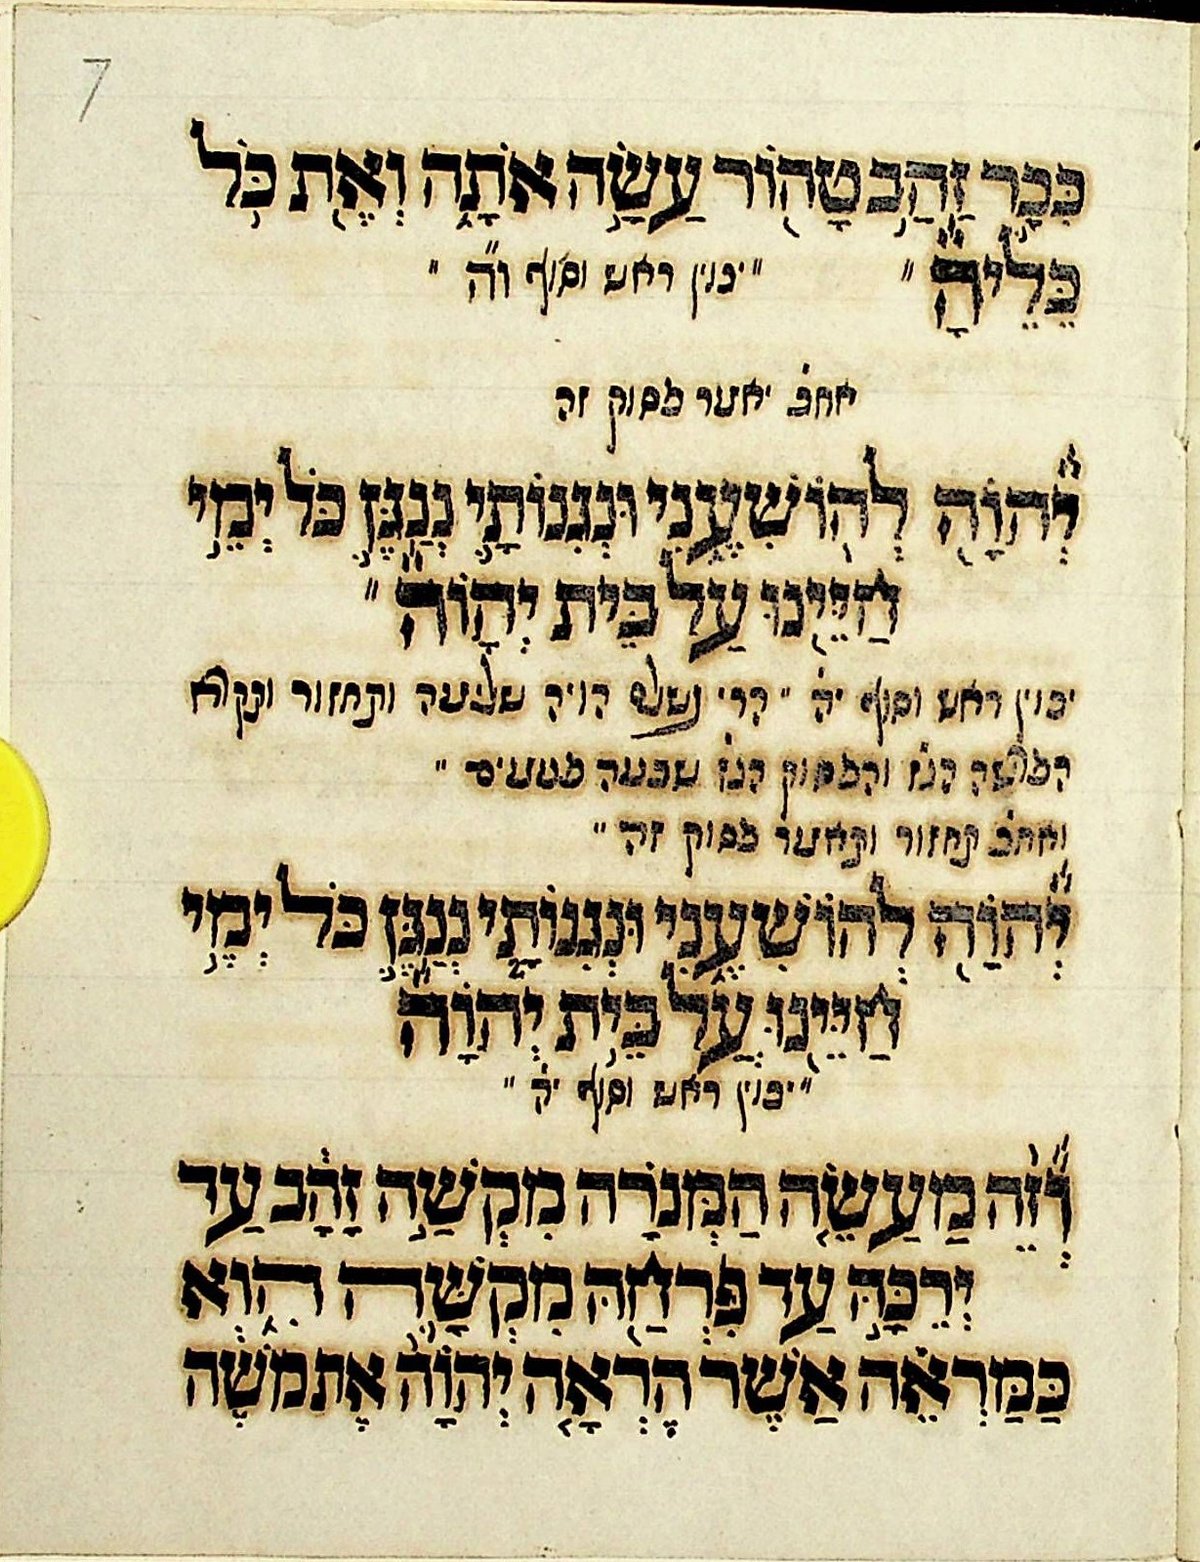 7
כִּכָּר זָהָב טָהוֹר עָשָׂה אֹתָהּ וְאֵת כׇּל
כֵּלֶיהָ " " יכוין ראש וסוף וה "
ואח״כ יאמר פסוק זה
יְהוָה לְהוֹשִׁיעֵנִי וּנְגִנוֹתַי נְנַגֵּן כׇּל יְמֵי
חַיֵּינוּ עַל בֵּית יְהוָה "
יכוין ראש וסוף יה " הרי נשלם שבעה ותחזור ותקרא
הפרשה הנז והפסוק הנז שבעה פעמים "
ואחכ תחזור ותאמר פסוק זה "
יְהוָה לְהוֹשִׁעֵנִי וּנְגִנוֹתַי נְנַגֵּן כׇּל יְמֵי
חַיֵּינוּ עַל בֵּית יְהוָה
" יכוין ראש וסוף יה "
וְזֶה מַעֲשֵׂה הַמְּנֹרָה מִקְשָׁה זָהָב עַד
יְרֵכָהּ עַד פִּרְחָהּ מִקְשָׁה הִוא
כַּמַּרְאֶה אֲשֶׁר הֶרְאָה יְהוָה אֶת מֹשֶׁה